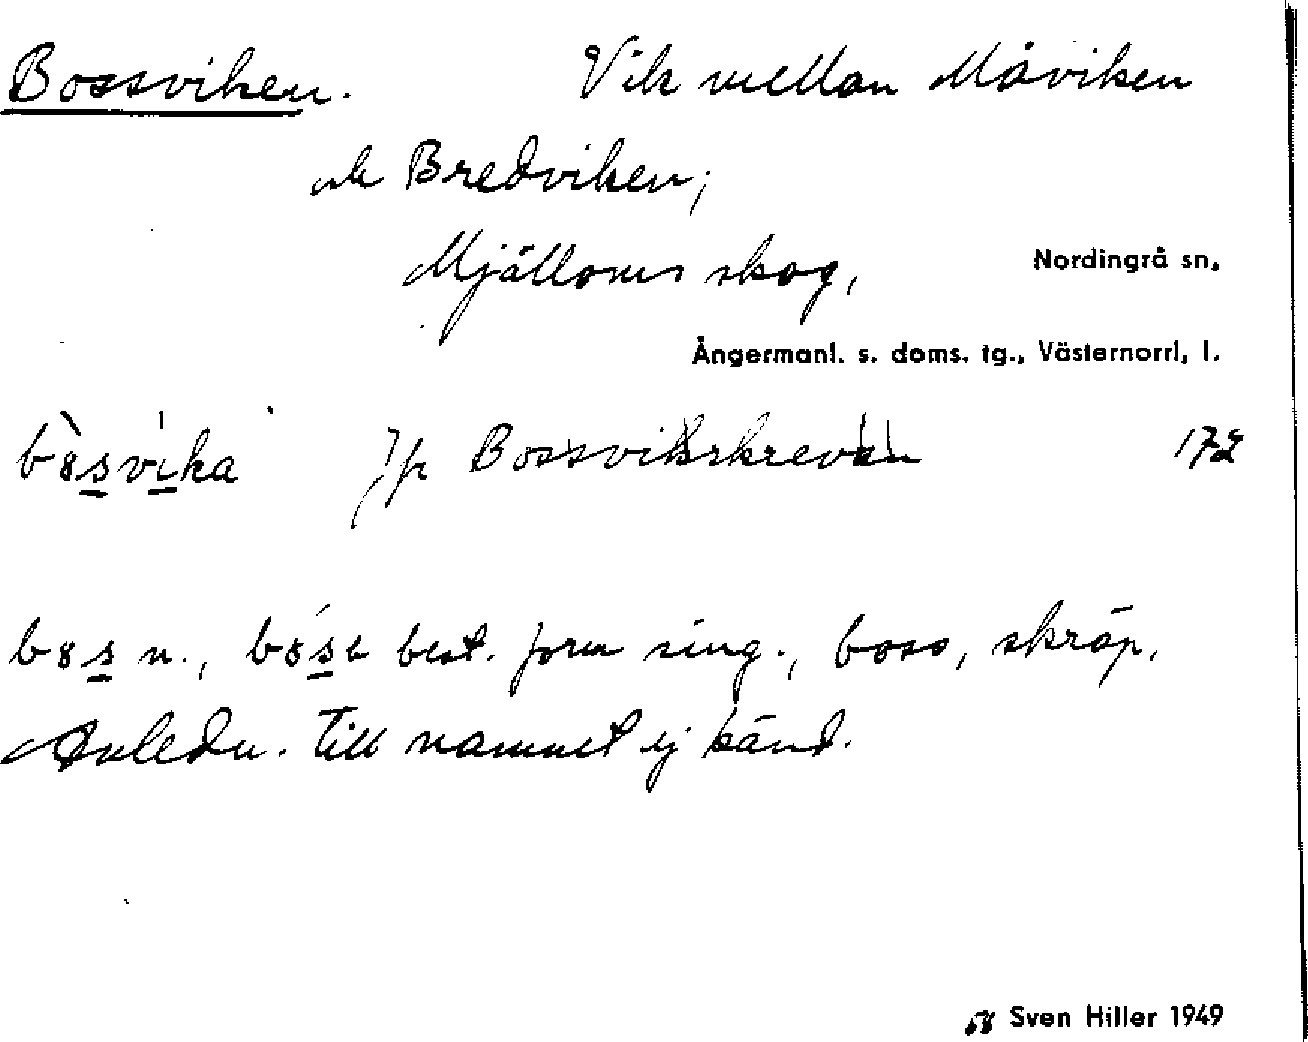 Bossviken. Vik mellan Måviken
och Bredviken;
Mjälloms skog, Nordingrå sn,
Ångermanl. s. doms. tg., Västernorrl. l.
b8̀svı̍ka Jfr Bossvikskrevan 172
b8s n., b8́sɩ best. form sing., boss, skräp.
Anledn. till namnet ej känd.
58 Sven Hiller 1949